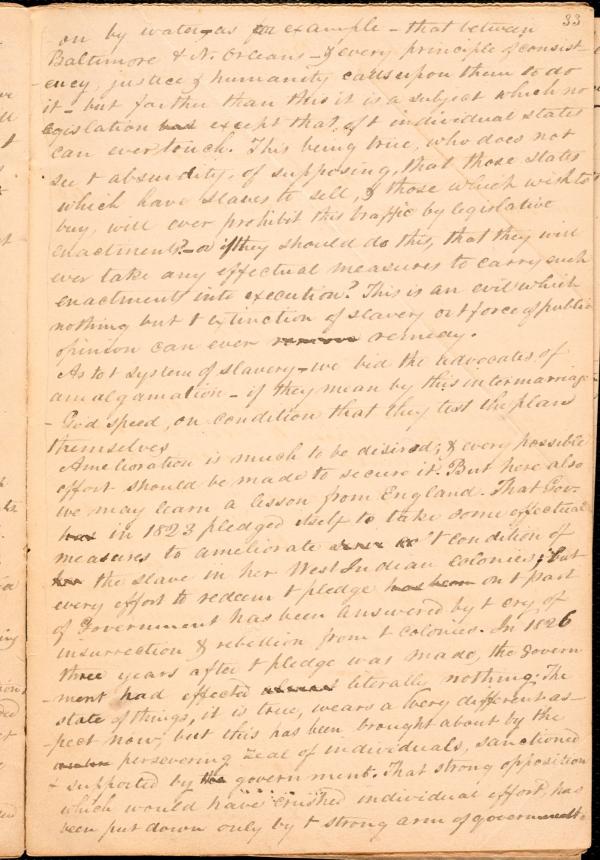 33
on by water, as for example - that between
Baltimore & N. Orleans - & every principle of consist-
ency, justice & humanity calls upon them to do
it - but farther than this it is a subject which no
legislation except that of t individual states
can ever touch. This being true, who does not
see t absurdity, of supposing, that those states
which have slaves to sell, & those which wish to
buy, will ever prohibit this traffic by legislative
enactments? - or if they should do this, that they will
ever take any effectual measures to carry such
enactments into execution? This is an evil which
nothing but t extinction of slavery or t force of public
opinion can ever remedy.
As to t system of slavery - we bid the advocates of
amalgamation - if they mean by this intermarriage
- God speed, on condition that they test the plan
themselves
Amelioration is much to be desired; & every possible
effort should be made to secure it. But here also
we may learn a lesson from England. That Gov-
in 1823 pledged itself to take some effectual
measures to ameliorate t condition of
the slave in her West Indian colonies; but
every effort to redeem t pledge on t part
of Government has been answered by t cry of
insurrection & rebellion from t colonies. In 1826
three years after t pledge was made, the Govern
-ment had effected literally nothing. The
state of things, it is true, wears a very different as-
pect now; but this has been brought about by the
persevering zeal of individuals, sanctioned
& supported by the government. That strong opposition
which would have crushed individual effort, has
been put down only by t strong arm of government.